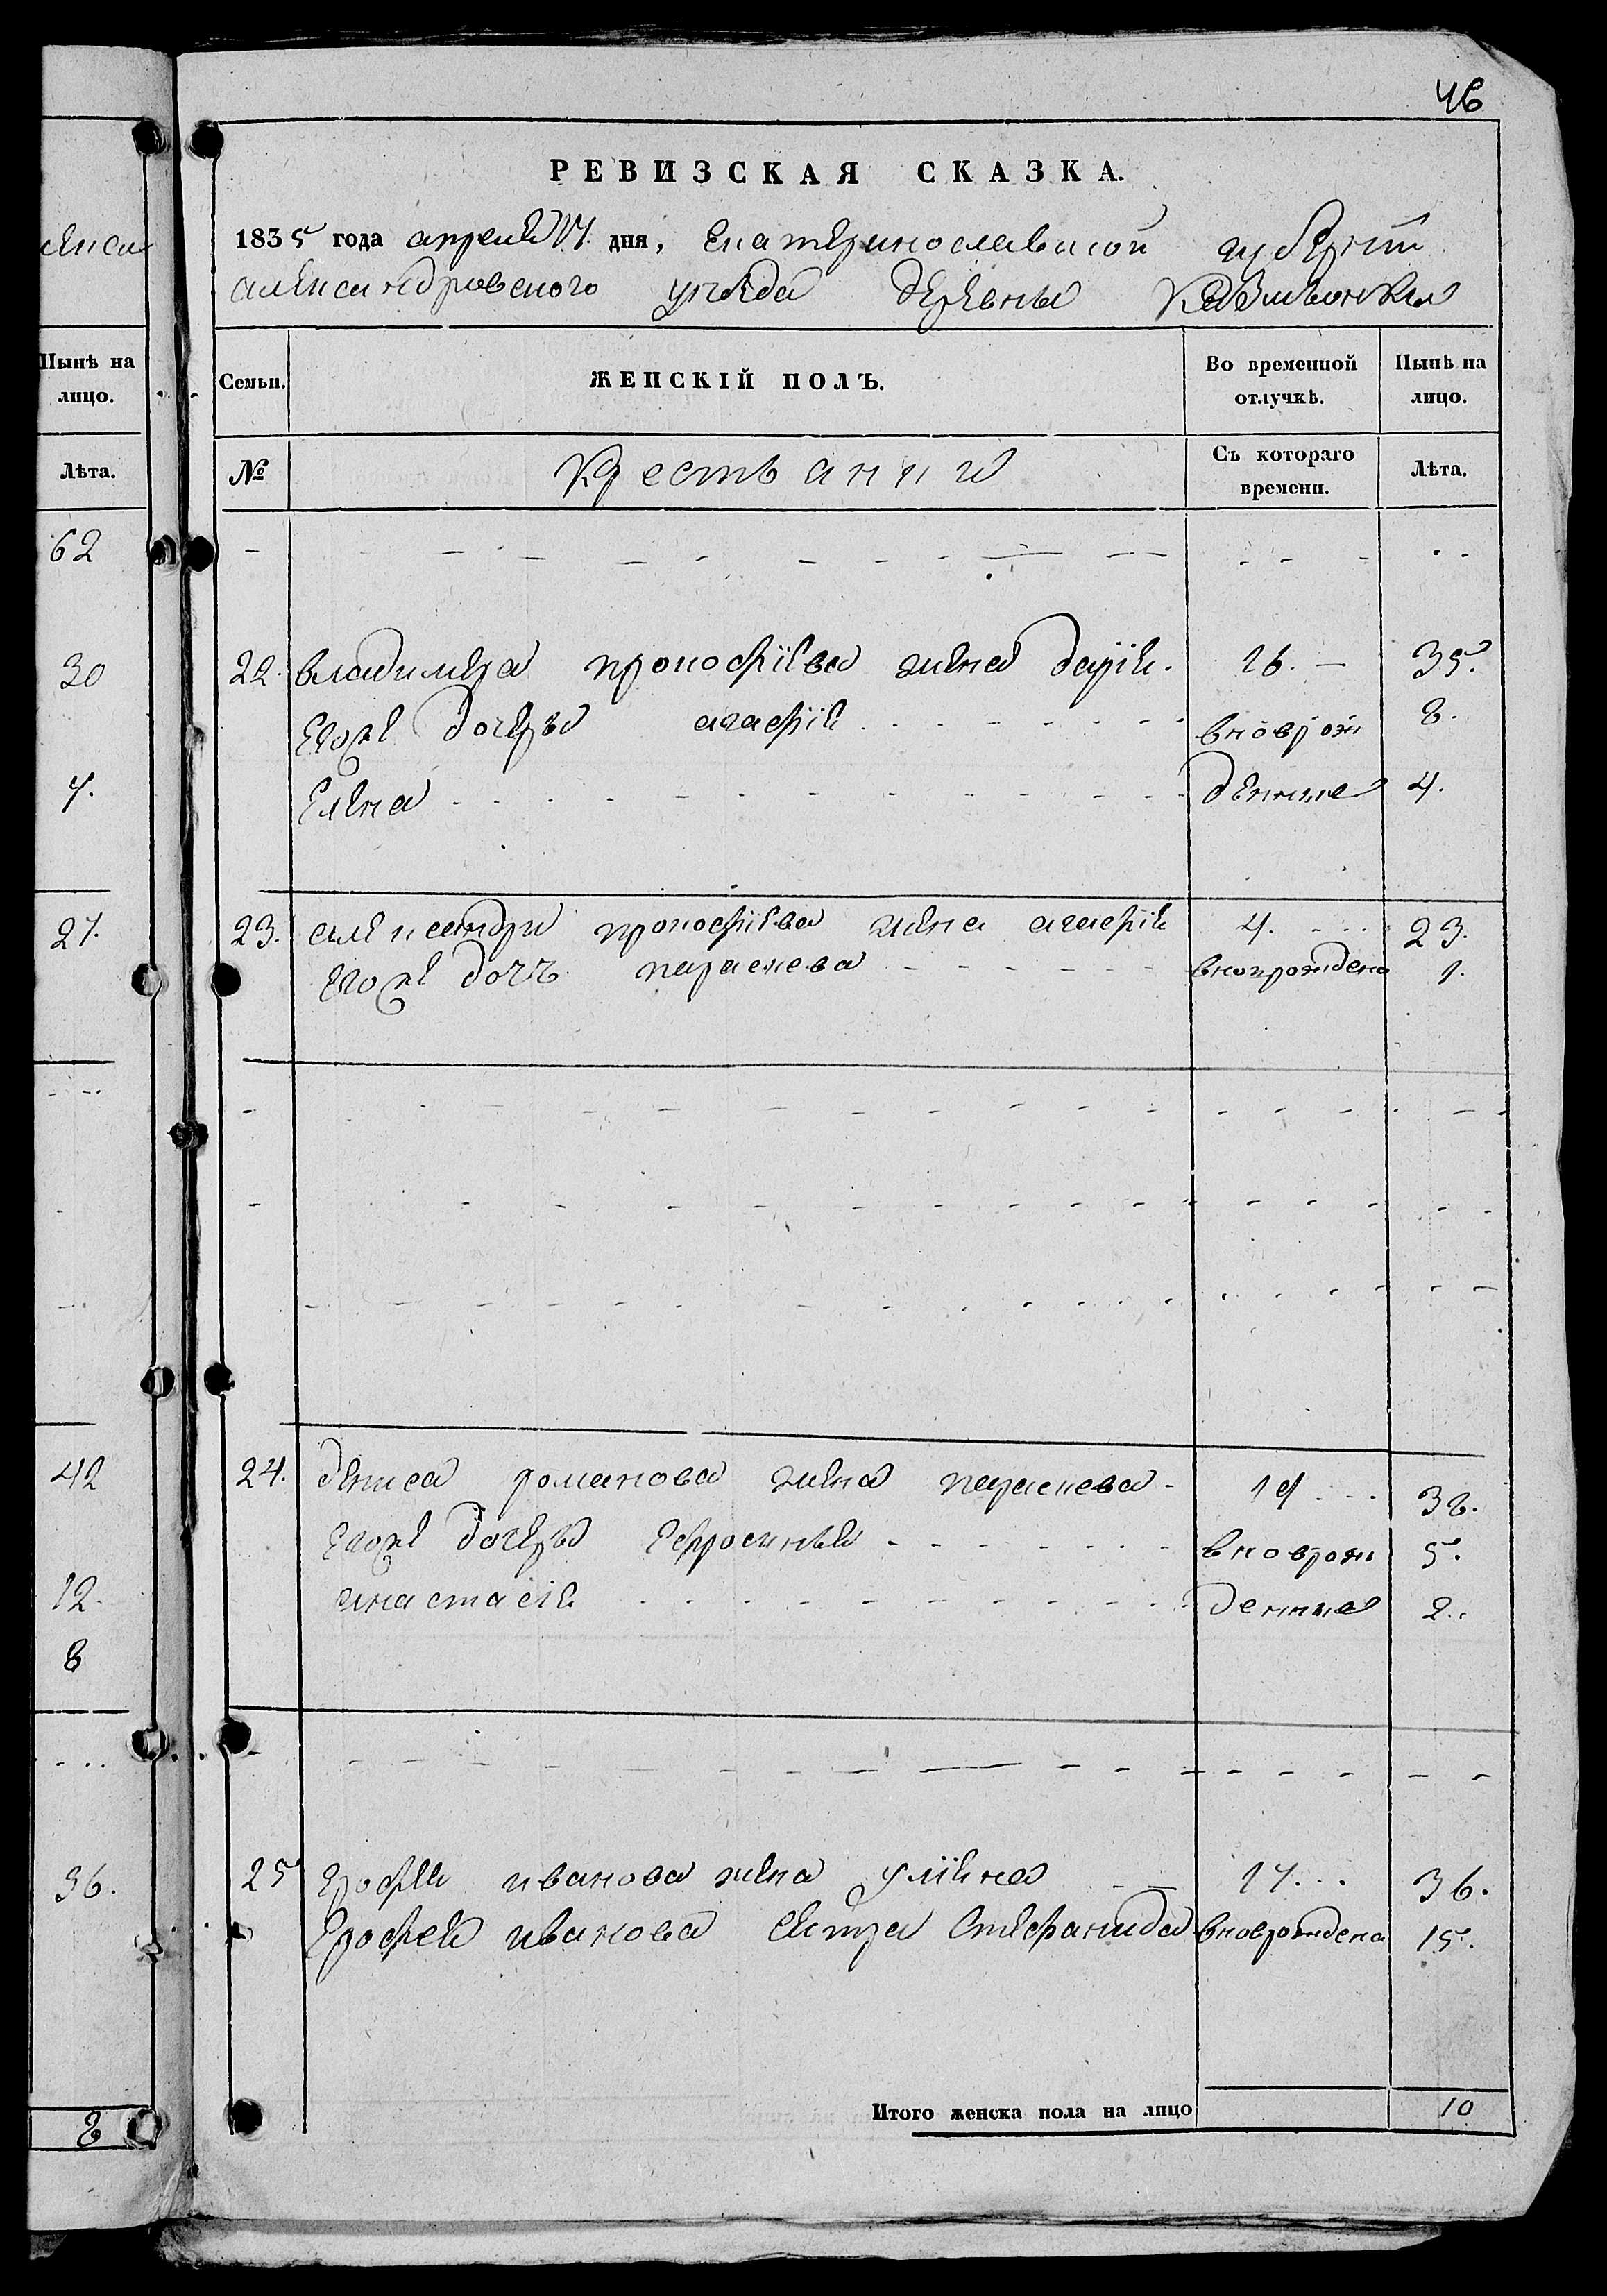 46
РЕВИЗСКАЯ СКАЗКА.
1835 года апреля дня, Екатеринославской губернии
александровского уезда деревни
Нынѣ на лицо.
Семьи.
ЖЕНСКІЙ ПОЛЪ.
Во временной отлучкѣ.
Нынѣ на лицо.
Лѣта.
№
Крестьанки
Съ котораго времени.
Лѣта.
62
30 22. владимера прокофіева жена даріи. 16. 35.
Егоже дочеръ агафіи вноврож 8.
7. Елена денные 4.
27. 23. александра прокофіева жена агафіи 4. 23.
Егоже дочъ параскева вноврождена 1.
42 24. дениса романова жена параскева 19 38.
Егоже дочеръ Ефросиньи вноврож 5.
12. анастасіи денные 2.
8
36. 25 Ерофеи иванова жена уліяна 17... 36.
Ерофеи иванова сестра Стефанида вноврождена 15.
8 Итого женска пола на лицо 10